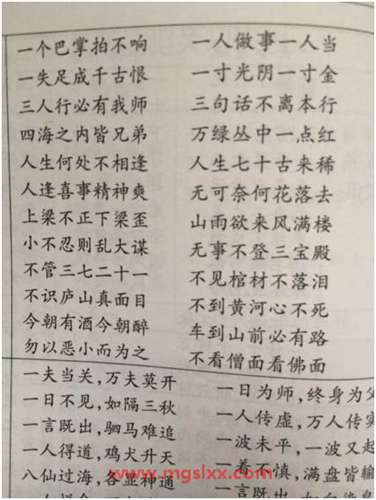 一个巴掌拍不响
一失足成千古恨
三人行必有我师
四海之内皆兄弟
人生何处不相逢
人逢喜事精神爽
上梁不正下梁歪
小不忍则乱大谋
不管三七二十一
不识庐山真面目
今朝有酒今朝醉
勿以恶小而为之
一人做事一人当
一寸光阴一寸金
三句话不离本行
万绿丛中一点红
人生七十古来稀
无可奈何花落去
山雨欲来风满楼
无事不登三宝殿
不见棺材不落泪
不到黄河心不死
车到山前必有路
不看僧面看佛面
一夫当关，万夫莫开
一日不见，如隔三秋
一言既出，驷马难追
一人得道，鸡犬升天
八仙过海，各显神通
一日为师，终身为父
一人传虚，万人传实
一波未平，一波又起
一着不慎，满盘皆输
www.mgslxx.com